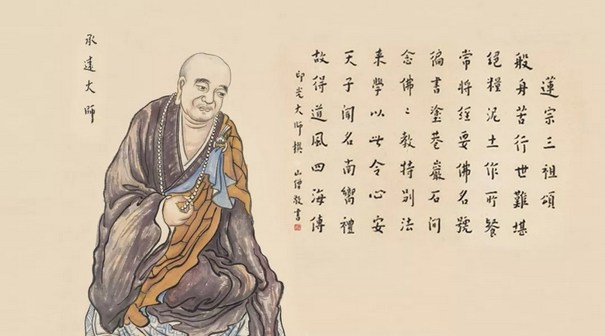 蓮宗三祖頌
般身苦行世難堪
絕糧泥土作所餐
常將經要佛名號
徧書塗巷巖石間
念佛々教特別法
來學以此令心安
天子聞名南嚮禮
故得道風四海傳
印光大師撰 山僧敬書
承遠大師